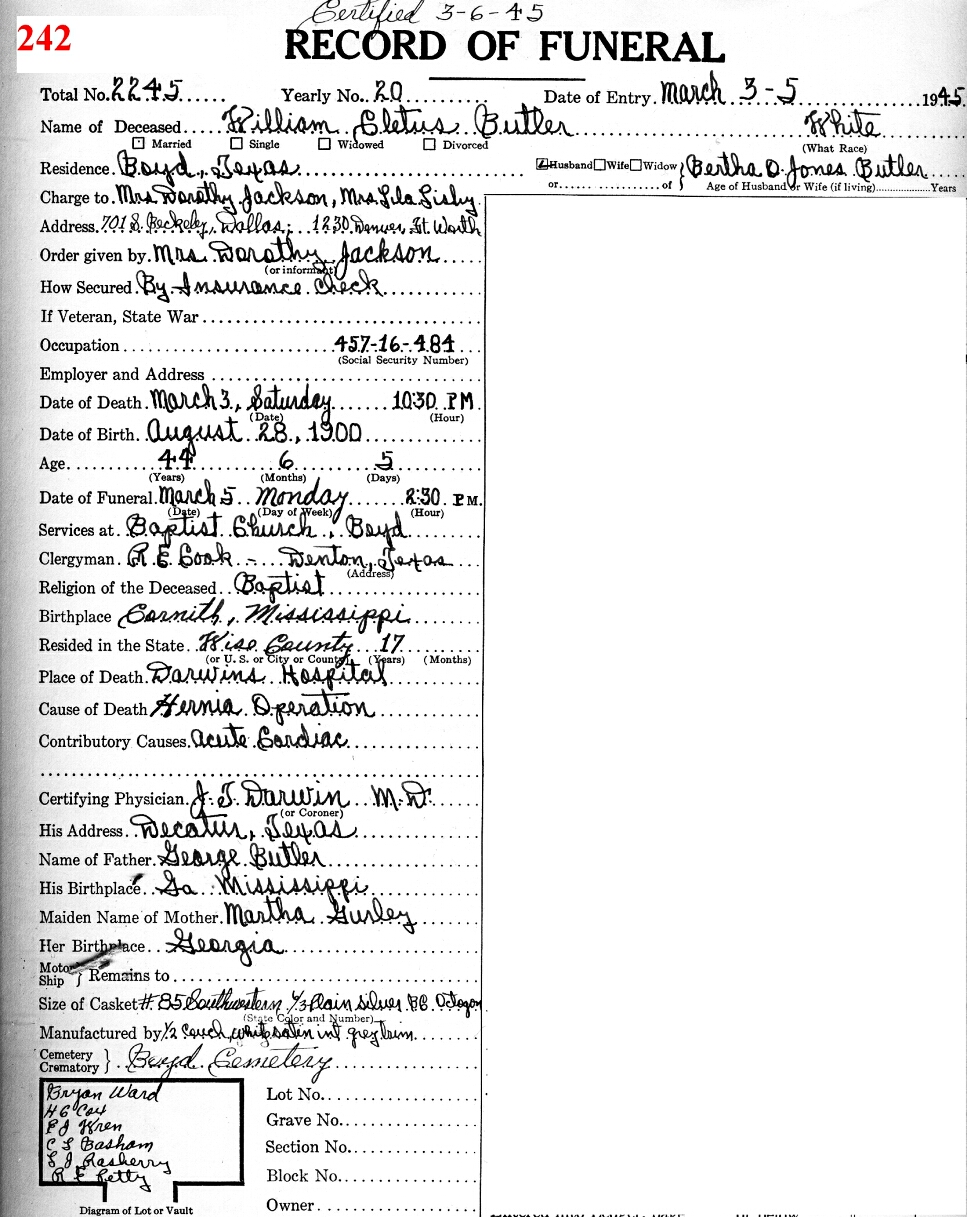 Certified 3-6-45
242
RECORD OF FUNERAL
Total No. 2245 Yearly No. 20 Date of Entry March 3-5 1945
Name of Deceased William Cletus Butler White
Married Single Widowed Divorced (What Race)
Residence Boyd, Texas Husband Wife Widow Bertha O. Jones Butler
or of Age of Husband or Wife (if living) Years
Charge to Mrs Dorothy Jackson, Mrs. Lila
Address 701 S. Beckeley, Dallas; 1230 Denver, Ft. Worth
Order given by Mrs. Dorothy Jackson
(or informant)
How Secured By Insurance Check
If Veteran, State War
Occupation 457-16-484
(Social Security Number)
Employer and Address
Date of Death March 3, Saturday 10:30 PM
(Date) (Hour)
Date of Birth August 28, 1900
Age 44 6 5
(Years) (Months) (Days)
Date of Funeral March 5 Monday 2:30 PM.
(Date) (Day of Week) (Hour)
Services at Baptist Church, Boyd
Clergyman R.E. Cook - Denton, Texas
(Address)
Religion of the Deceased Baptist
Birthplace Cornith, Mississippi
Resided in the State Wise County 17
(or U. S. or City or County) (Years) (Months)
Place of Death Darwins Hospital
Cause of Death Hernia Operation
Contributory Causes Acute Cardiac
Certifying Physician J. T. Darwin M.D.
(or Coroner)
His Address Decatur, Texas
Name of Father George Butler
His Birthplace Ga Mississippi
Maiden Name of Mother Martha Gurley
Her Birthplace Georgia
Motor Ship } Remains to
Size of Casket # 85 Southwestern 6/3 plain silver Octogon
(State Color and Number)
Manufactured by 1/2 couch, white satin int
Cemetery Crematory } Boyd Cemetery
Bryan Ward
H G Cox
Wren
C S Basham
S J Rasberry
R E Petty
Lot No.
Grave No.
Section No.
Block No.
Owner
Diagram of Lot or Vault